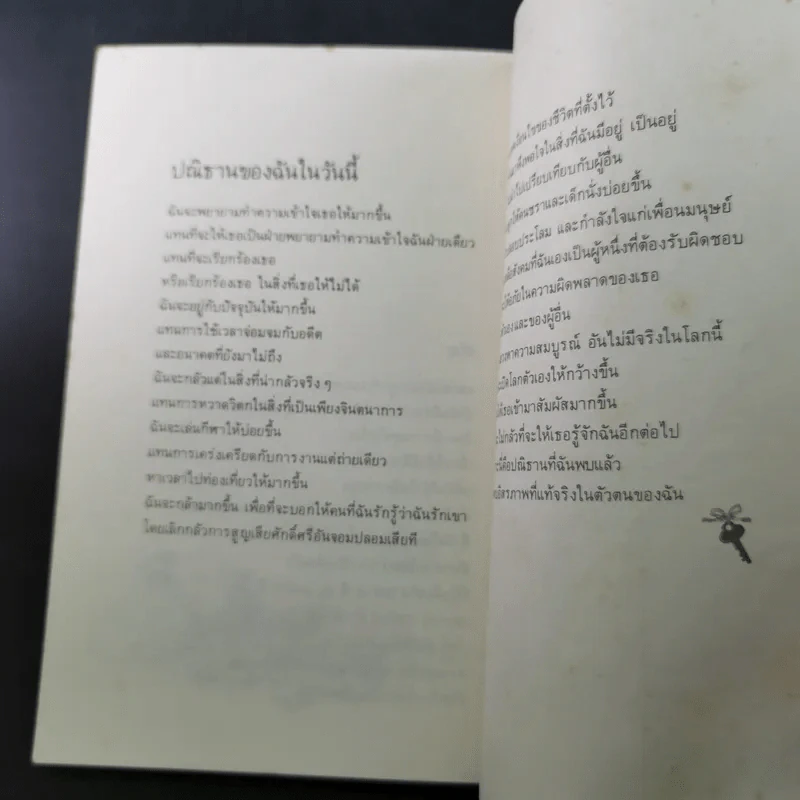 ปณิธานของฉันในวันนี้
ฉันจะพยายามทำความเข้าใจเธอให้มากขึ้น
แทนที่จะให้เธอเป็นฝ่ายพยายามทำความเข้าใจฉันฝ่ายเดียว
แทนที่จะเรียกร้องเธอ
หรือเรียกร้องเธอ ในสิ่งที่เธอให้ไม่ได้
ฉันจะอยู่กับปัจจุบันให้มากขึ้น
แทนการใช้เวลาจ่อมจมกับอดีต
และอนาคตที่ยังมาไม่ถึง
ฉันจะกลัวแต่ในสิ่งที่น่ากลัวจริง ๆ
แทนการหวาดวิตกในสิ่งที่เป็นเพียงจินตนาการ
ฉันจะเล่นกีฬาให้บ่อยขึ้น
แทนการเคร่งเครียดกับการงานแต่ถ่ายเดียว
หาเวลาไปท่องเที่ยวให้มากขึ้น
ฉันจะกล้ามากขึ้น เพื่อที่จะบอกให้คนที่ฉันรักรู้ว่าฉันรักเขา
โดยเลิกกลัวการสูญเสียศักดิ์ศรีอันจอมปลอมเสียที
ของชีวิตที่ตั้งไว้
พึงพอใจในสิ่งที่ฉันมีอยู่ เป็นอยู่
ไปเปรียบเทียบกับผู้อื่น
ให้คนชราและเด็กนั่งบ่อยขึ้น
ประโลม และกำลังใจแก่เพื่อนมนุษย์
สังคมที่ฉันเองเป็นผู้หนึ่งที่ต้องรับผิดชอบ
ในความผิดพลาดของเธอ
และของผู้อื่น
หาความสมบูรณ์ อันไม่มีจริงในโลกนี้
โลกตัวเองให้กว้างขึ้น
เธอเข้ามาสัมผัสมากขึ้น
ไม่กลัวที่จะให้เธอรู้จักฉันอีกต่อไป
นี่คือปณิธานที่ฉันพบแล้ว
ที่แท้จริงในตัวตนของฉัน